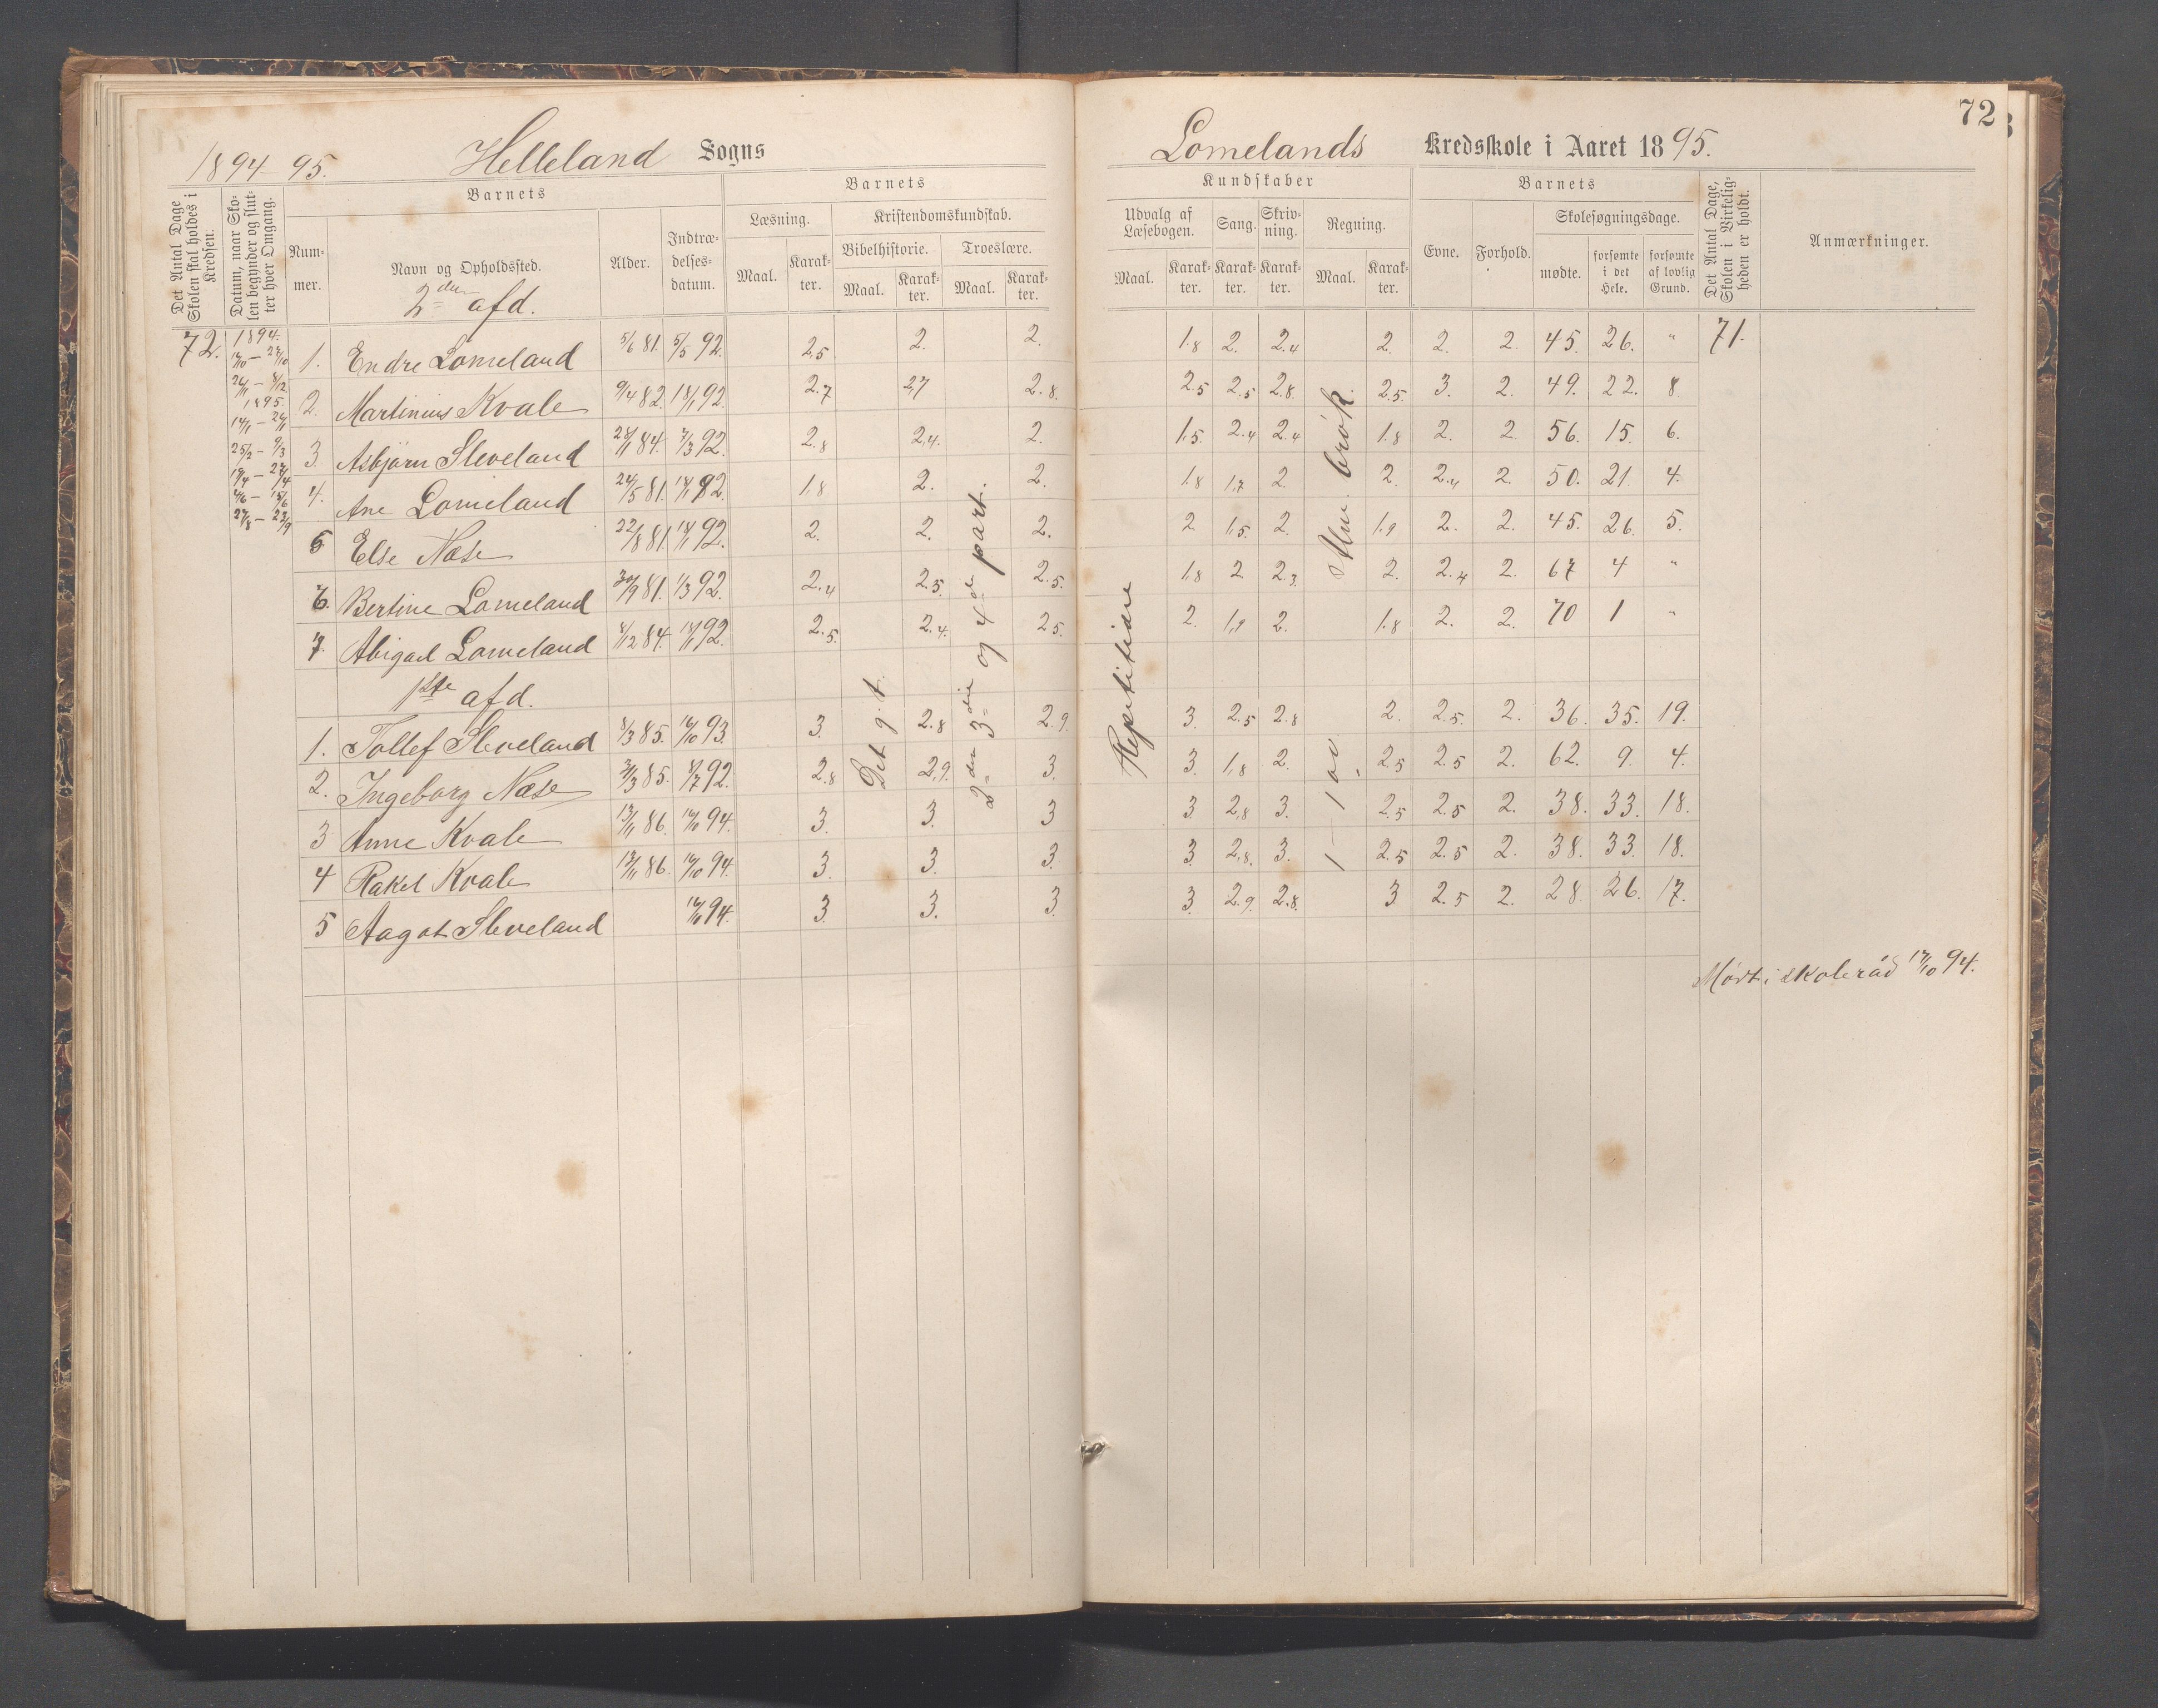 72
1894-95. Helleland Sogns
Lomelands Kredsskole i Aaret 1895.
Det Antal Dage Skolen skal holdes i Kredsen.
Datum, naar Skolen begynder og slutter hver Omgang.
Barnets
Nummer.
Navn og Opholdssted.
2den afd.
Alder.
Indtrædelsesdatum.
Barnets
Læsning.
Maal.
Karakter.
Kristendomskundskab.
Bibelhistorie.
Maal.
Karakter.
Troeslære.
Maal.
Karakter.
Kundskaber
Udvalg af Læsebogen.
Maal.
Karakter.
Sang.
Karakter.
Skrivning.
Karakter.
Regning.
Maal.
Karakter.
Barnets
Evne.
Forhold.
Skolesøgningsdage.
mødte.
forsømte i det Hele.
forsømte af lovlig Grund.
Det Antal Dage, Skolen i Virkeligheden er holdt.
Anmærkninger.
72.
1894.
1895.
1. Endre Lomeland 5/6 81. 5/5 92. 2,5 2. 2. 1.8 2. 2.4 2. 2. 2. 45. 26. " 71.
2. Martinius Kvale 9/4 82. 18/1 92. 2.7 2,7 2.8. 2.5 2.5 2.8. 2.5. 3. 2. 49. 22. 8
3. Asbjørn Sleveland 28/11 84. 7/3 92. 2.8 2,4. 2. 1,5. 2.4 2.4 1.8 2. 2. 56. 15. 6.
4. Ane Lomeland 24/5 81. 18/1 92. 1,8 2. 2. 1.8 1,7 2. 2. 2.4 2. 50. 21. 4.
5 Else Næse 22/8 81. 18/1 92. 2. 2. 2. 2. 1,5. 2. 1.9 2. 2. 45. 26. 5.
6. Bertine Lomeland 30/9 81. 1/3 92. 2.4 2.5. 2.5. 1,8 2 2.3. 2. 2.4 2. 67 4 "
7. Abigael Lomeland 8/12 84. 18/1 92. 2.5. 2.4. 2 5. 2. 1,9 2. 1.8 2. 2. 70 1 "
1ste afd.
1. Tollef Sleveland 8/3 85. 16/10 93. 3. 2.8 2.9. 3. 2.5 2.8 2. 2.5. 2. 36. 35. 19.
2. Ingeborg Næse 3/3 85. 8/7 92. 2.8 2,9. 3. 3. 1,8 2. 2.5 2.5 2. 62. 9. 4.
3 Anne Kvale 13/11 86. 16/10 94. 3. 3. 3 3. 2,8 3. 2.5 2.5 2. 38. 33. 18.
4 Rakel Kvale 13/11 86. 16/10 94. 3. 3. 3. 3. 2,8. 3. 2.5 2.5 2. 38. 33. 18.
5 Aagot Sleveland 16/10 94. 3. 3. 3. 3. 2.9. 2.8. 3 2.5 2. 28. 26. 17.
Det g. t.
2den 3die og 4de part.
Repetitidere
Alm. brøk.
Mødt i skoleråd 17/10 94.